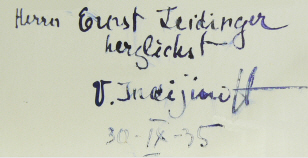 Herrn Ernst Leidinger
herzlichst
30-IX-35